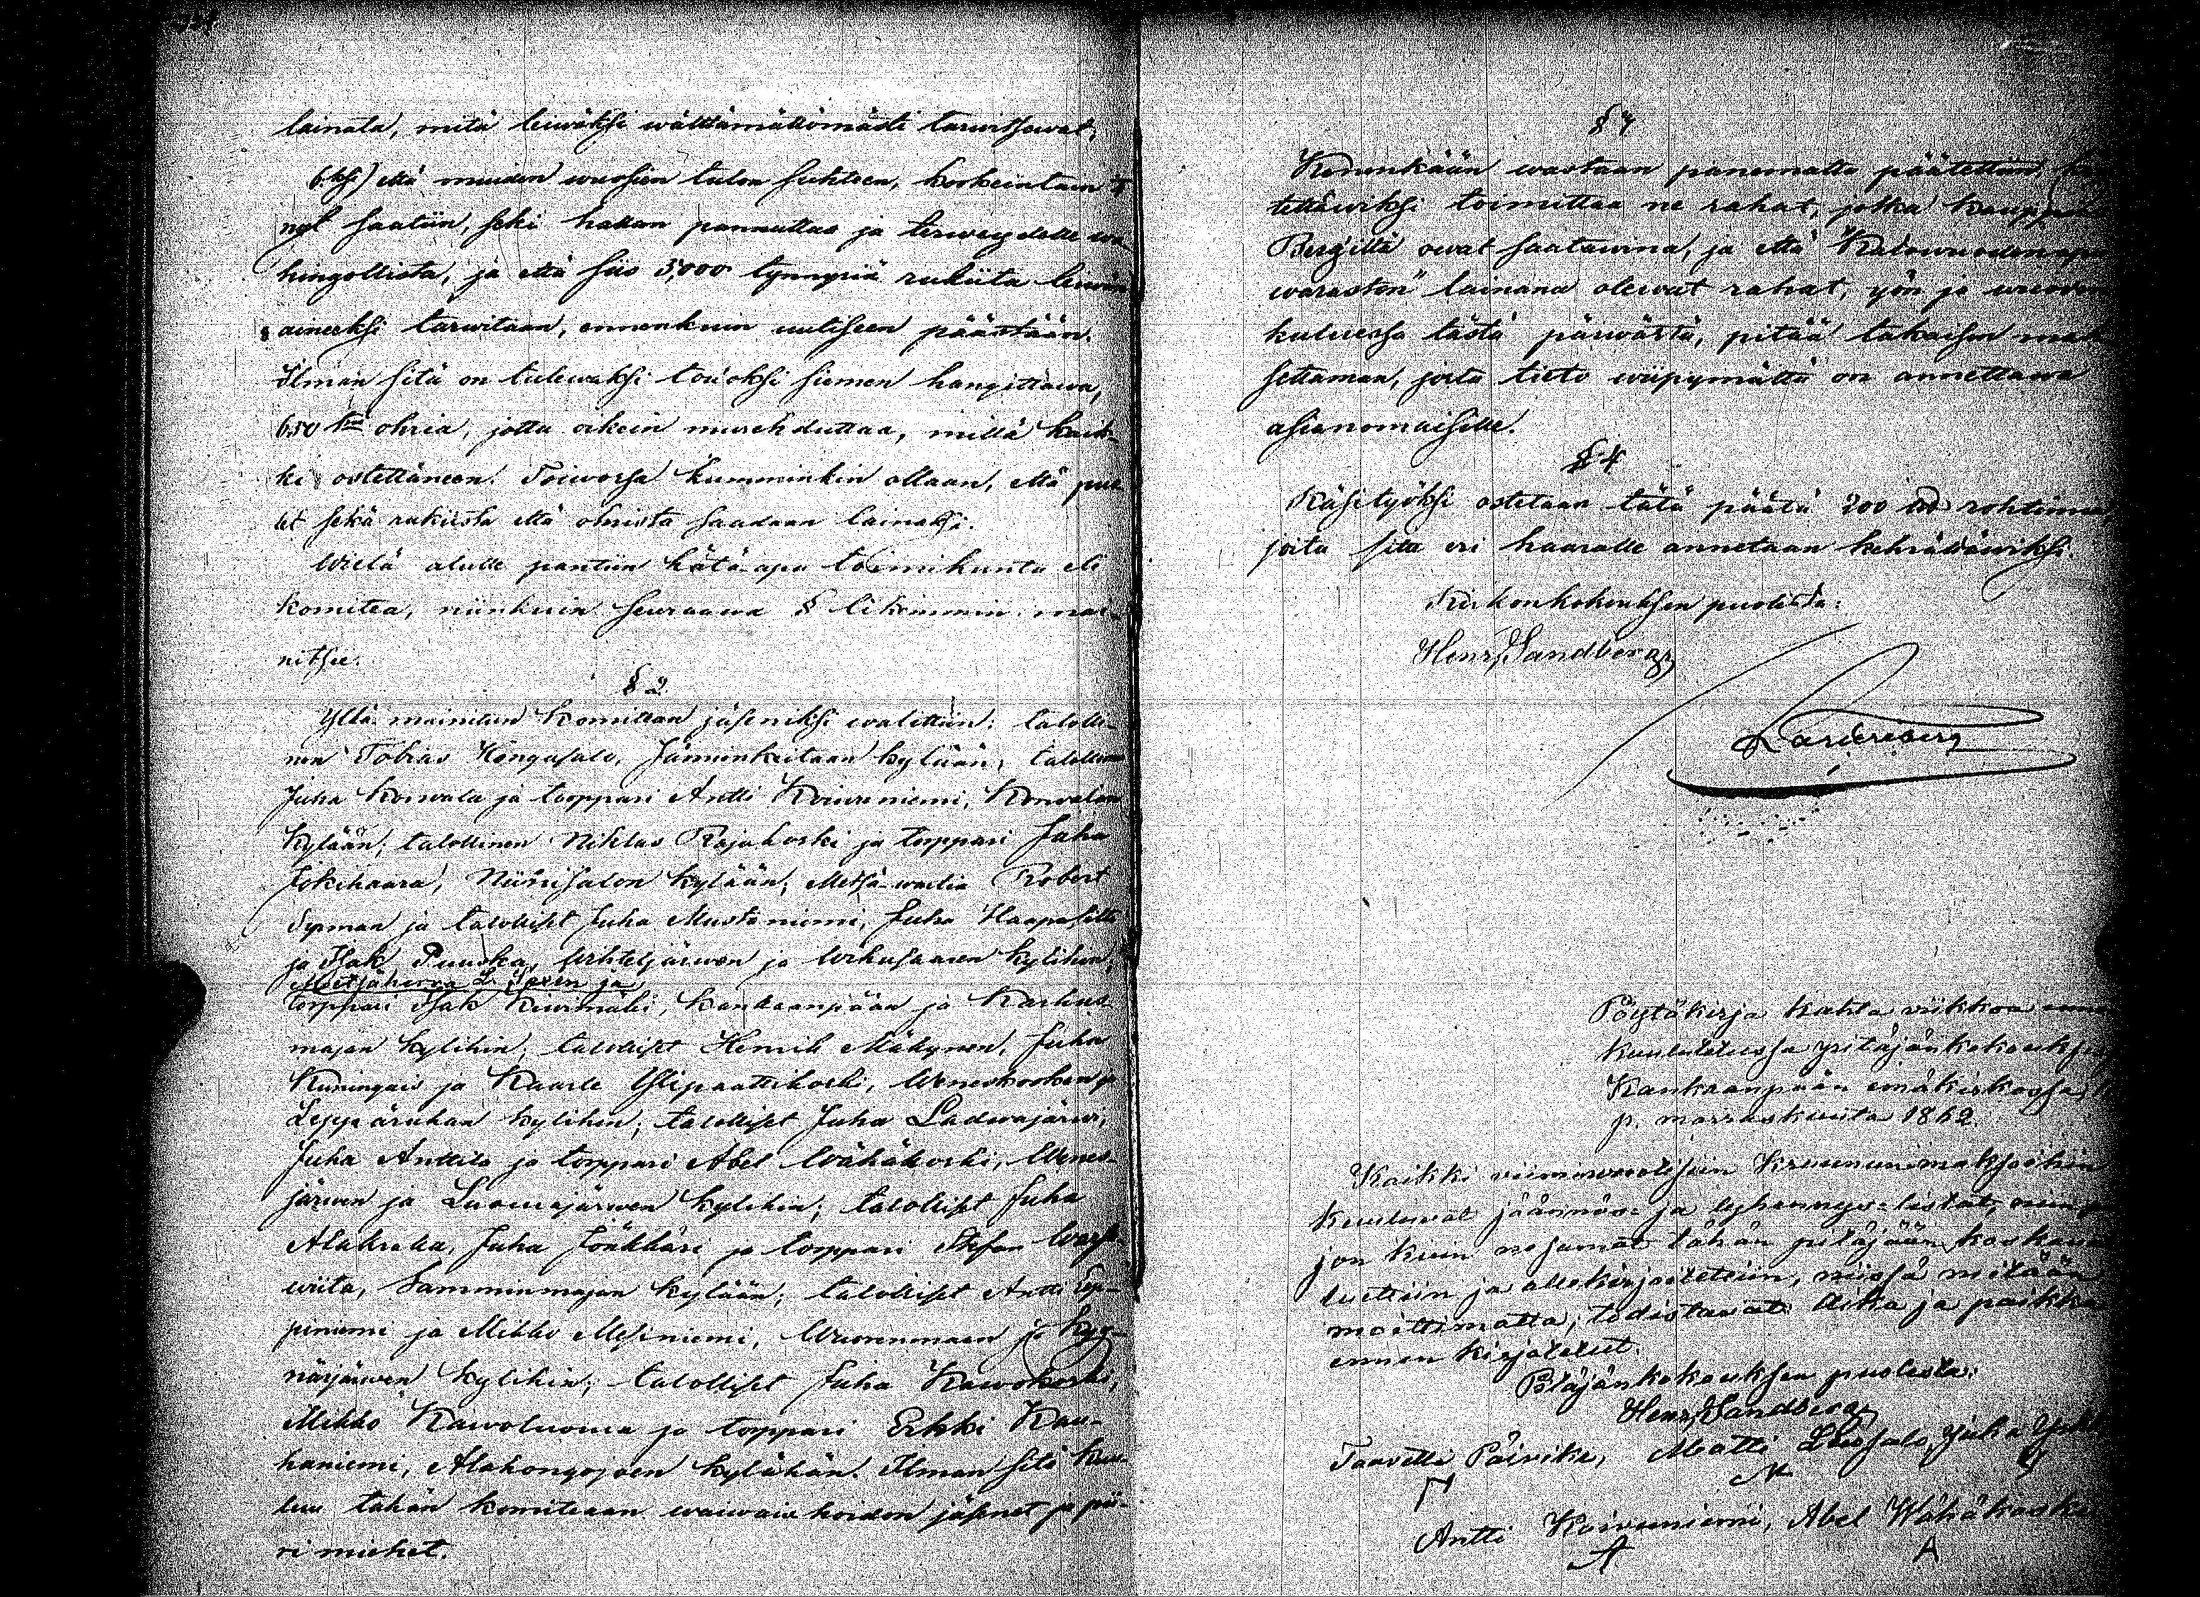 lainata, mitä leiwäksi wälttämättömästi tarwitsewat;
6ksi) että muiden wuosien tulon suhteen, korkeintain
nyt saatiin, seki hallan pannuttaa ja terweydelle wa-
hingollista, ja että siis 5,000 tynnyriä rukiita leiwän
aineeksi tarwitaan, ennenkuin uutiseen päästään.
Ilman sitä on tulewaksi touoksi siemen hangittawa,
650 tm ohria, jotta oikein murehduttaa, millä kaik-
ki ostettaneen. Toiwossa kumminkin ollaan, että puo-
let sekä rukiista että ohrista saadaan lainaksi.
Wielä alulle pantiin hätä-apu toimikunta eli
komitea, niinkuin seuraawa § likemmin mai-
nitsee.
§ 2
Yllä mainitun komitean jäseniksi walittiin: talolli-
nen Tobias Hongusalo, Jämiinkeitaan kylään; talollinen
Juha Korwala ja torppari Antti Koiwuniemi, Korwalan
kylään; talollinen Niklas Rajakoski ja torppari Juha
Jokihaara, Niinisalon kylään; Metsä-wartia Robert
Syman ja talolliset Juha Mustaniemi, Juha Haapasilta
ja Isak Puuska, Wihteljärwen ja Werhusaaren kylihin;
Metsäherra L. Toren ja
torppari Isak Kiwimäki, Kankaanpään ja Karhus-
majan kylihin; talolliset Henrik Mäkynen, Juha
Kuningais ja Kaarle Ylipaattikoski, Weneskosken ja
Leppäruhan kylihin; talolliset Juha Ladwajärwi,
Juha Anttila ja torppari Abel Wähäkoski, Wenes-
järwen ja Luomajärwen kylihin; talolliset Juha
Alakraka, Juha Jönkkäri ja torppari Stefan
wiita, Samminmajan kylään; talolliset Antti Lep-
piniemi ja Mikko Mesiniemi, Wuorenmaan ja Kyy-
närjärwen kylihin; talolliset Juha Kawokoski,
Mikko Kawoluoma ja torppari Erkki Kau-
haniemi, Alahongojoen kylähän. Ilman sitä kuu-
luu tähän komiteaan waiwais hoidon jäsenet ja pii-
ri miehet.
Kenenkään wastaan panematta päätettiin
tettäwiksi toimittaa ne rahat, jotka
owat saatawina, ja että "Katowuoden
waraston" lainana olewat rahat, yön ja wuoden
kuluessa tästä päiwästä, pitää takaisin mak-
settaman, josta tieto wiipymättä on annettawa
asianomaisille.
§ 4
Käsityöksi ostetaan tätä päätä 200 rohtimia,
joita sitte eri haaralle annetaan kehrättäwiksi.
Kirkonkokouksen puolesta:
Henr. Sandberg
Pöytäkirja kahta viikkoa ennen
kuulutetussa pitäjänkokouksessa
Kankaanpään emäkirkossa
p. marraskuuta 1862.
Kaikki viimevuotisiin Kruununmaksoihin
kuuluvat jäännös- ja lyhennys-listat, niin
jon kuin ne samat tähän pitäjään koskevat
luettiin ja allekirjoitettiin, niissä mitään
moittimatta; todistavat Aika ja paikka
ennen kirjoitetut.
Pitäjänkokouksen puolesta:
Henr. Sandberg
Taavetti Päivike, Matti Liusalo, Juha
Antti Koivuniemi, Abel Wähäkoski
A A